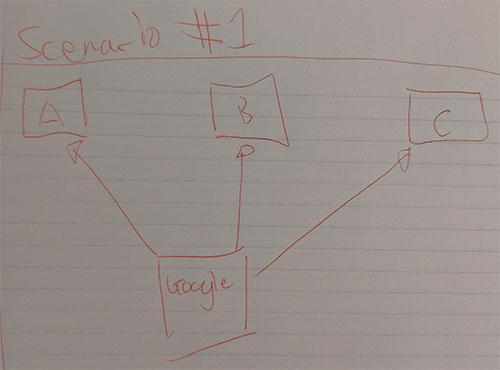 Scenario #1
A B C
Google